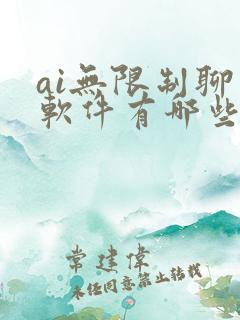 ai無限制聊
軟件有哪些
常建偉
未经同意禁止转载